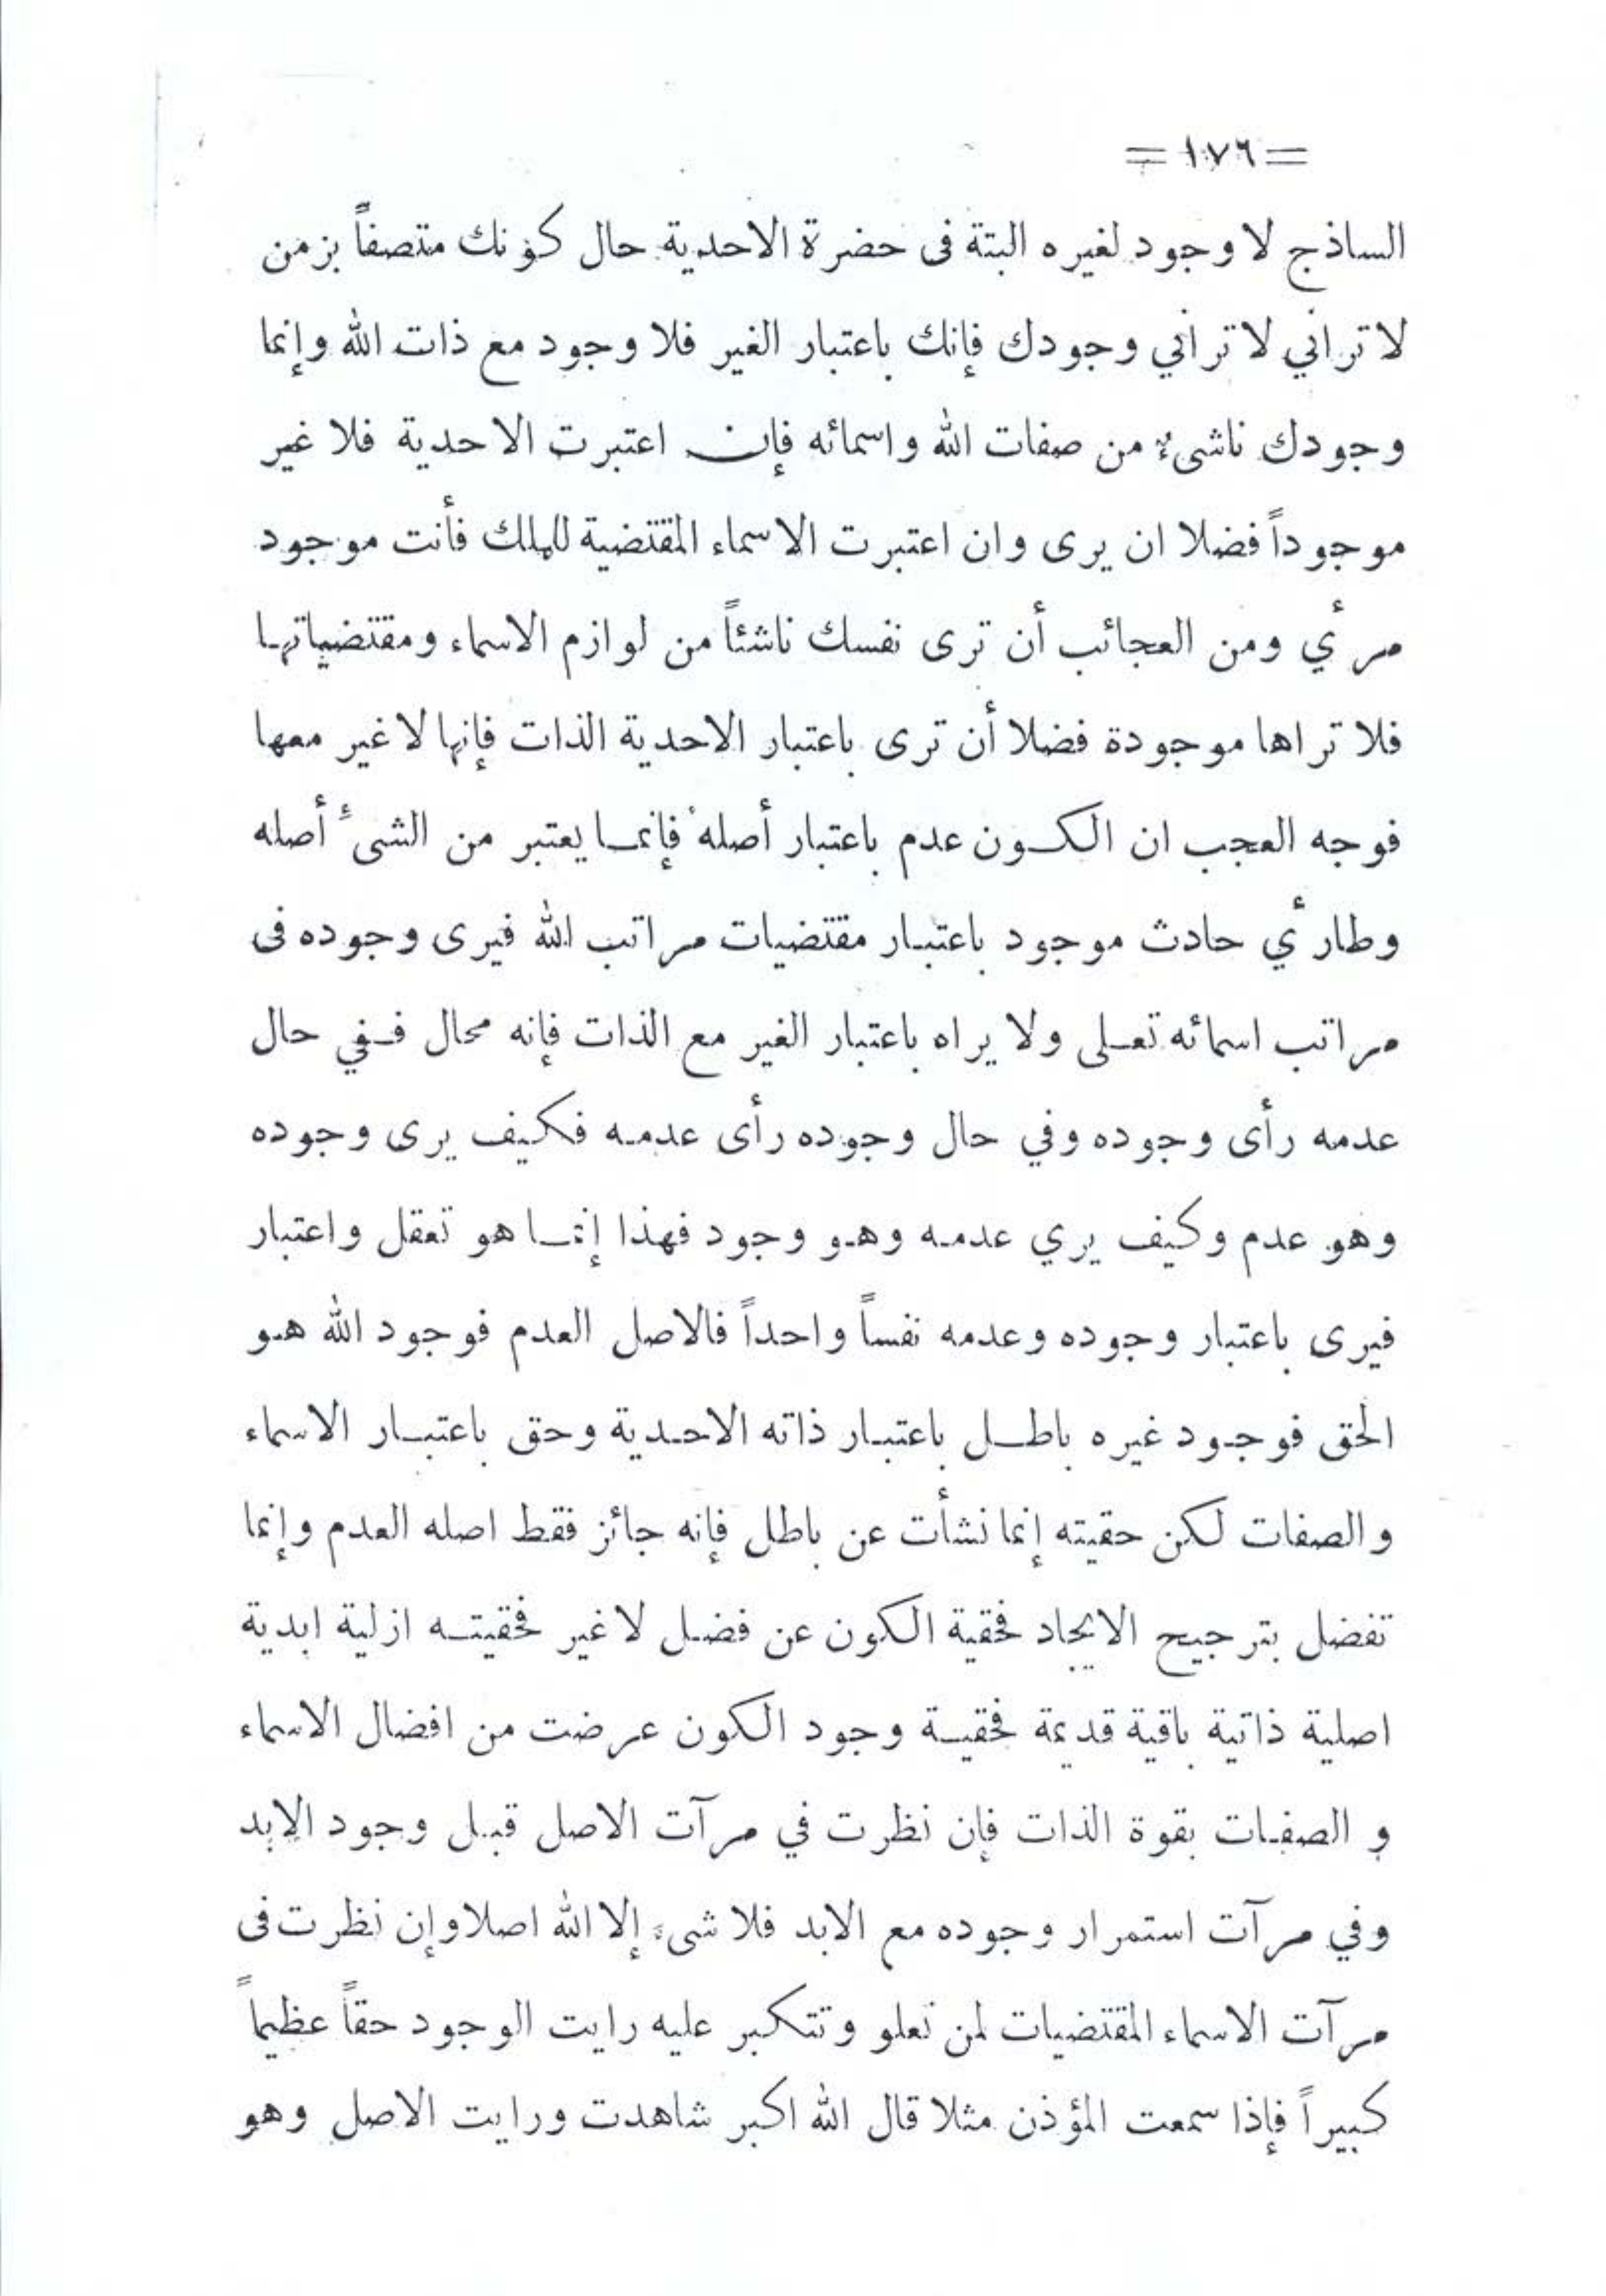 = ١٧٦ =
الساذج لا وجود لغيره البتة فى حضرة الاحدية حال كونك متصفاً بزمن
لا تراني لا تراني وجودك فإنك باعتبار الغير فلا وجود مع ذات الله وإنما
وجودك ناشىء من صفات الله واسمائه فإن اعتبرت الاحدية فلا غير
موجوداً فضلا ان يرى وان اعتبرت الاسماء المقتضية للملك فأنت موجود
مرأي ومن العجائب أن ترى نفسك ناشئاً من لوازم الاسماء ومقتضياتها
فلا تراها موجودة فضلا أن ترى باعتبار الاحدية الذات فإنها لا غير معها
فوجه العجب ان الكون عدم باعتبار أصله فإنما يعتبر من الشىء أصله
وطارأي حادث موجود باعتبار مقتضيات مراتب الله فيرى وجوده فى
مراتب اسمائه تعلى ولا يراه باعتبار الغير مع الذات فإنه محال ففي حال
عدمه رأى وجوده وفي حال وجوده رأى عدمه فكيف يرى وجوده
وهو عدم وكيف يري عدمه وهو وجود فهذا إنما هو تعقل واعتبار
فيرى باعتبار وجوده وعدمه نفساً واحداً فالاصل العدم فوجود الله هو
الحق فوجود غيره باطل باعتبار ذاته الاحدية وحق باعتبار الاسماء
والصفات لكن حقيته إنما نشأت عن باطل فإنه جائز فقط اصله العدم وإنما
تفضل بترجيح الايجاد فحقية الكون عن فضل لا غير فحقيته ازلية ابدية
اصلية ذاتية باقية قديمة فحقية وجود الكون عرضت من افضال الاسماء
و الصفات بقوة الذات فإن نظرت في مرآت الاصل قبل وجود الابد
وفي مرآت استمرار وجوده مع الابد فلا شىء إلا الله اصلا وإن نظرت فى
مرآت الاسماء المقتضيات لمن تعلو وتتكبر عليه رايت الوجود حقاً عظيماً
كبيراً فإذا سمعت المؤذن مثلا قال الله اكبر شاهدت ورايت الاصل وهو